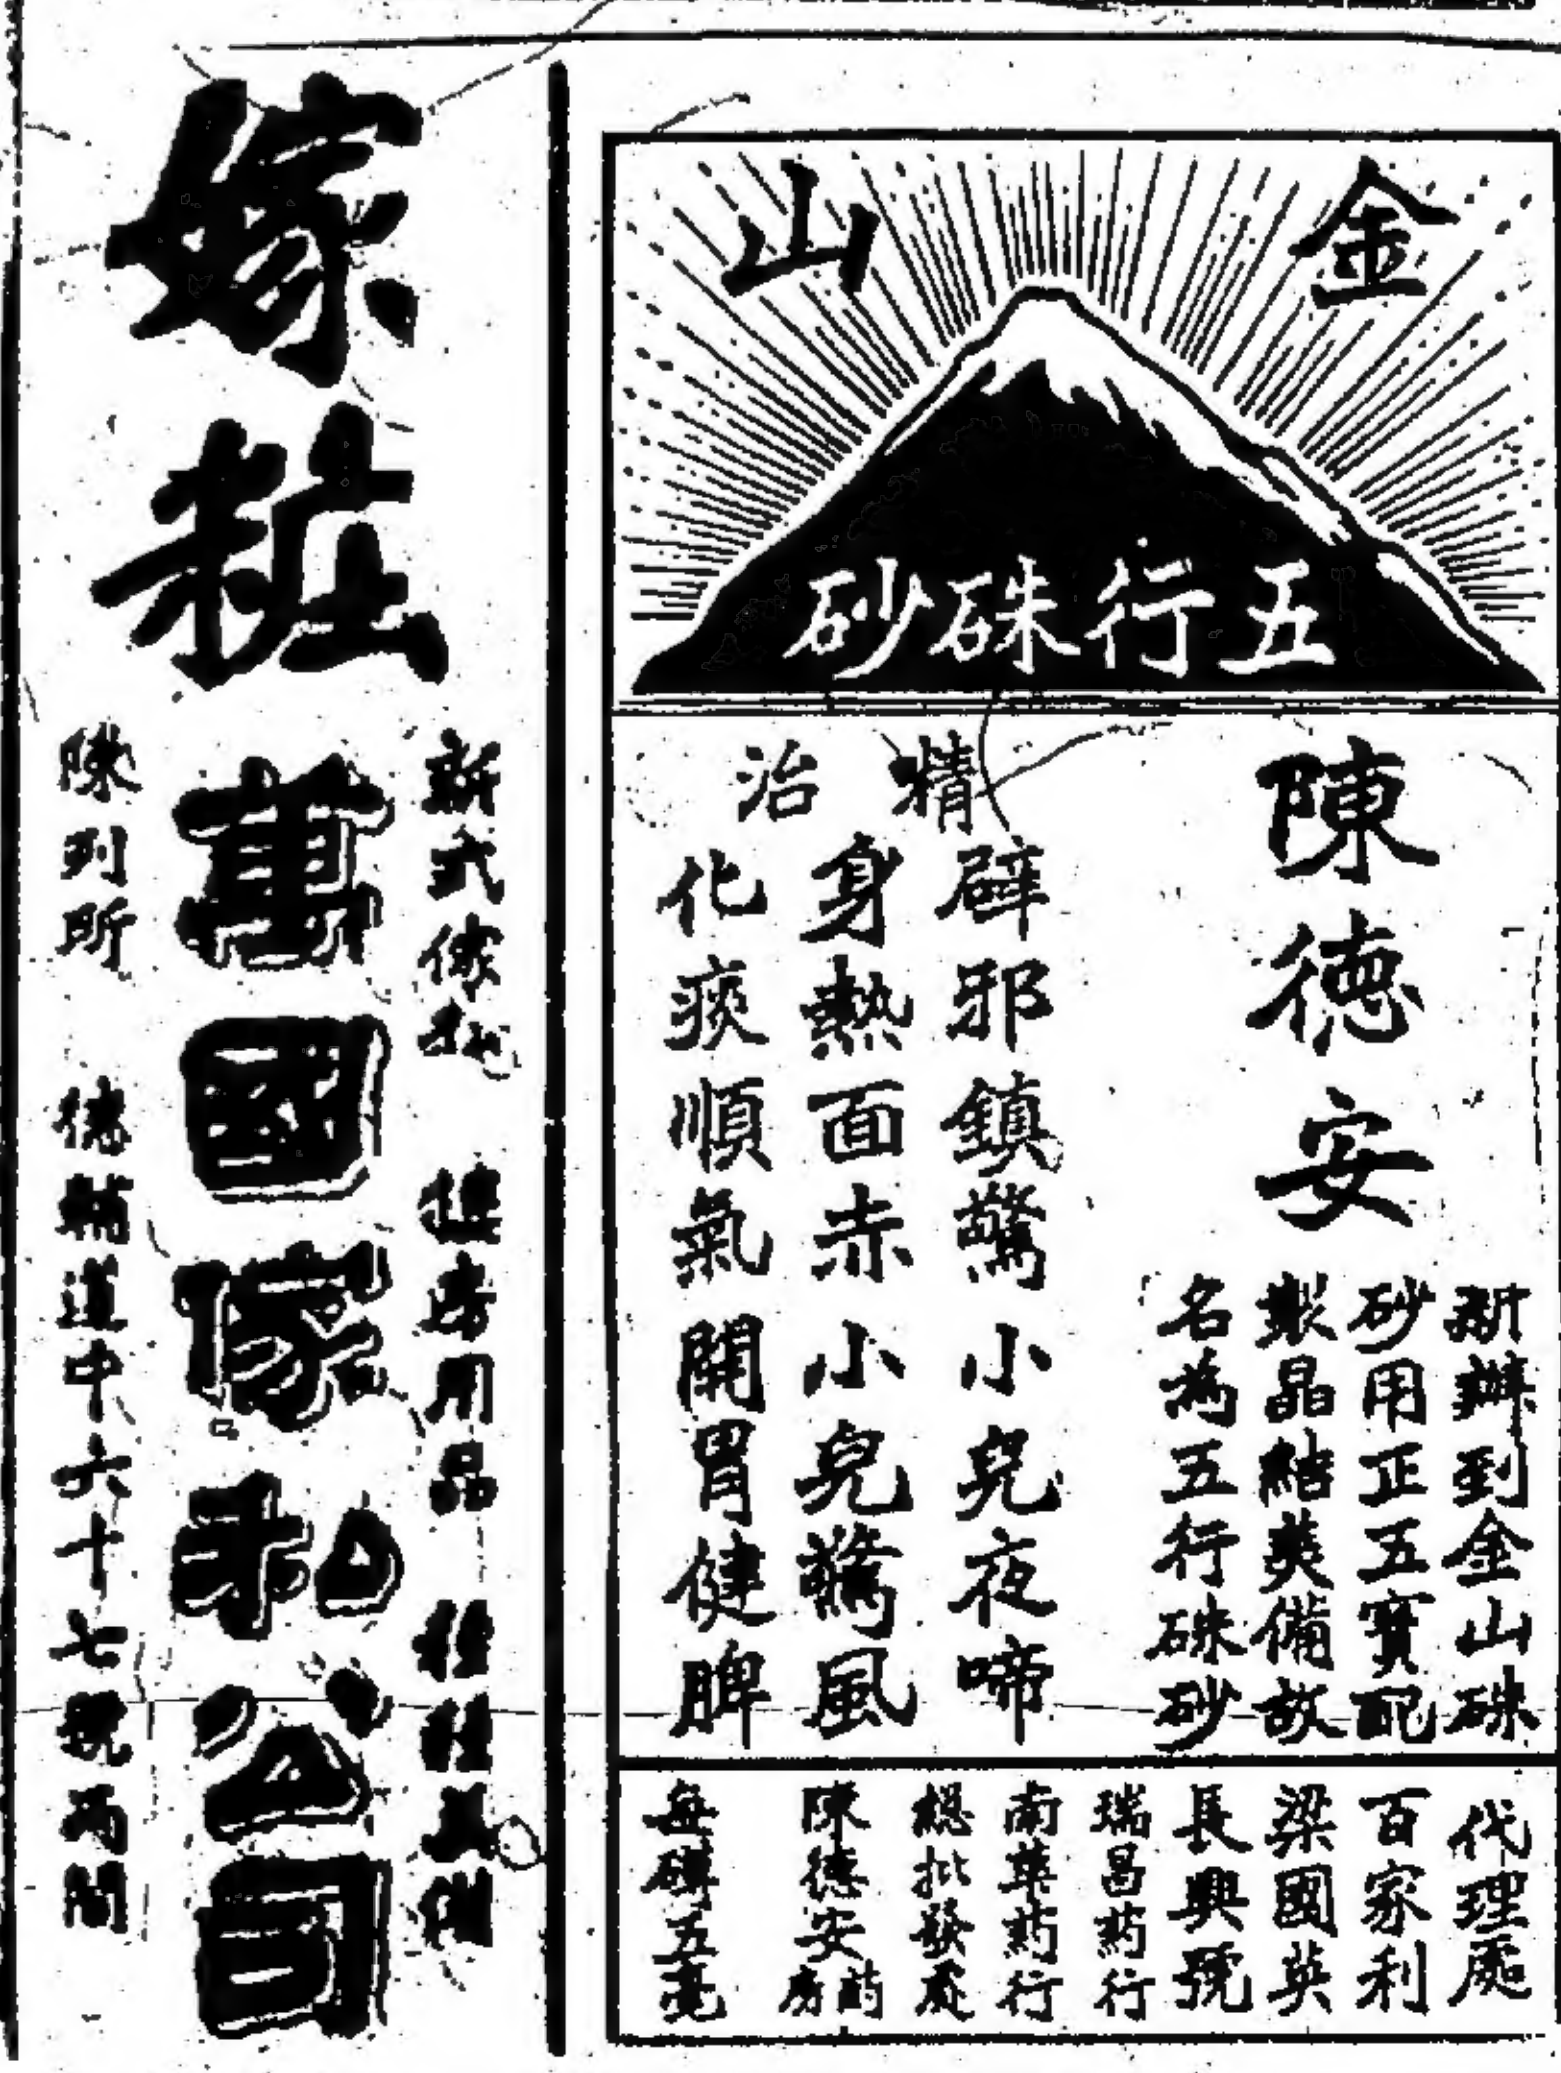 金山
五行硃砂
陳德安
新辦到金山硃
砂用正五寶配
製晶結美備故
名為五行硃砂
精治
辟邪鎮驚小兒夜啼
身熱面赤小兒驚風
化痰順氣開胃健脾
代理處
百家利
梁國英
長興號
瑞昌葯行
南華葯行
總批發處
陳德安葯房
每磚五毫
嫁粧
新式傢私
樓房用品
種種具備
萬國傢私公司
陳列所
德輔道中六十七號兩間